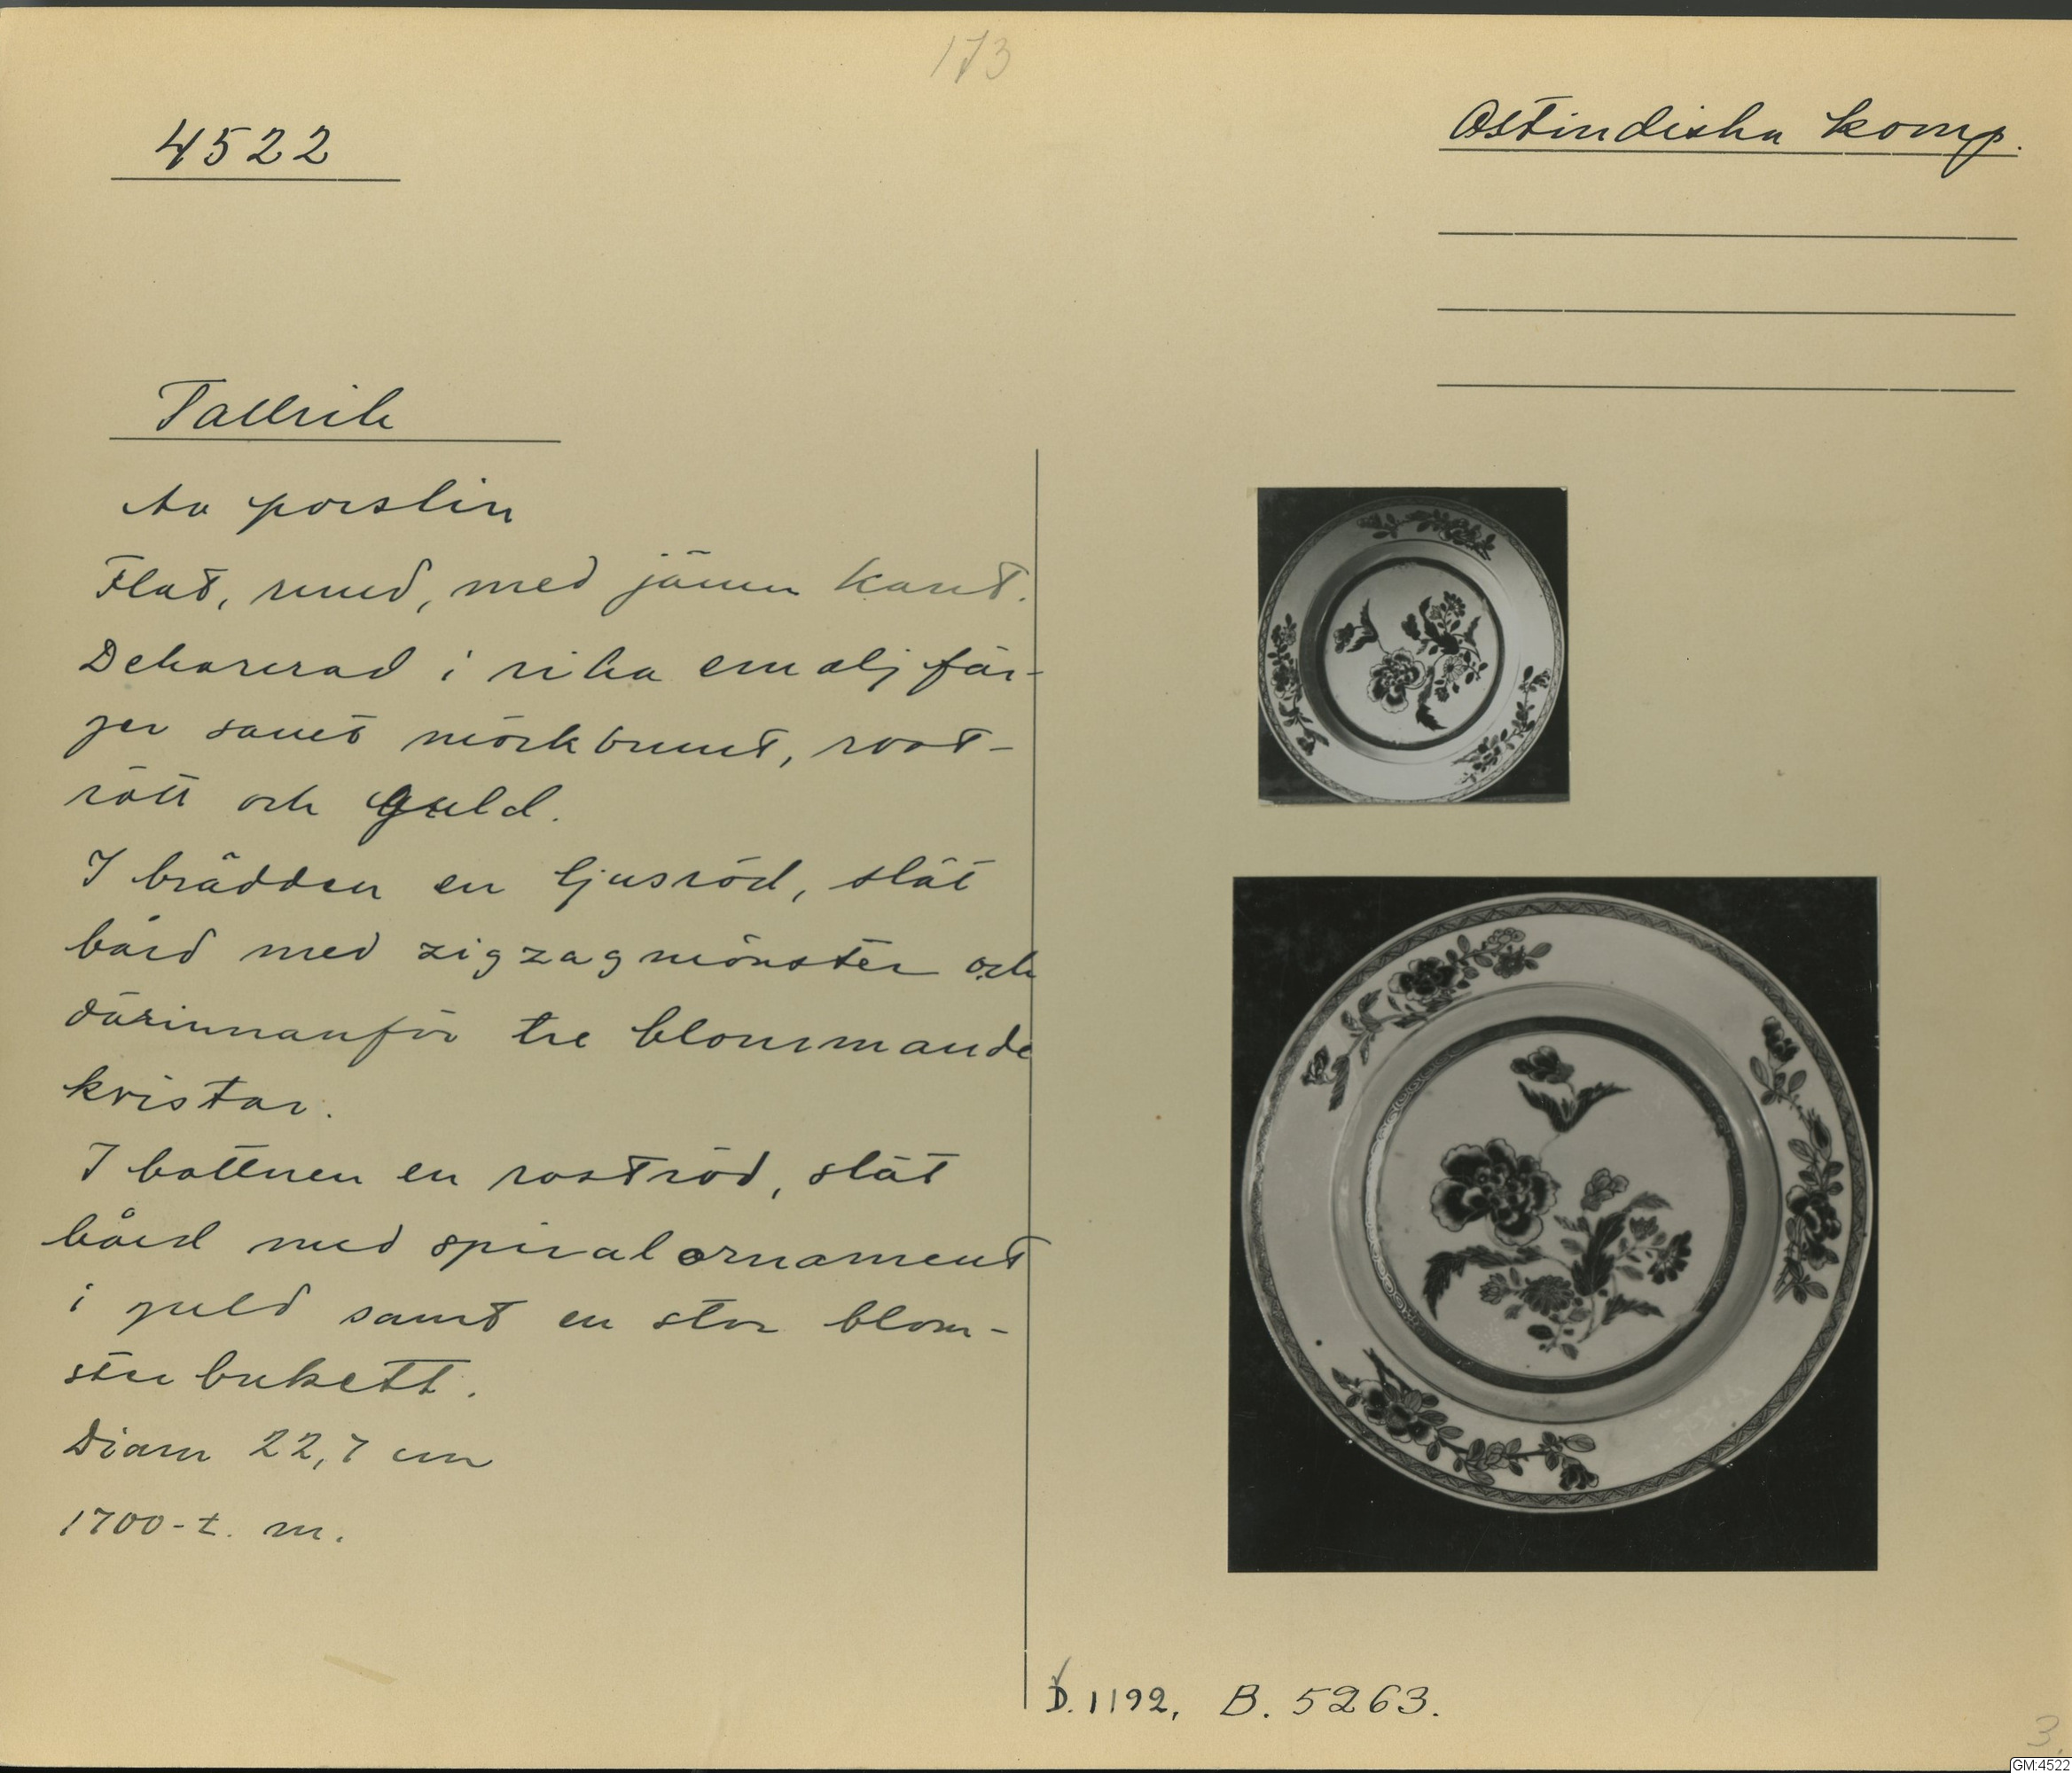 173
4522
Ostindiska komp.
Tallrik
Av porslin
Flat, rund, med jämn kant.
Dekorerad i rika emaljfär-
ger samt mörkbrunt, rost-
rött och guld.
I brädden en ljusröd, slät
bård med zigzagmönster och
därinnanför tre blommande
kvistar.
I bottnen en roströd, slät
bård med spiralornament
i guld samt en stor blom-
sterbukett.
Diam 22,7 cm
1700-t. m.
D. 1192, B. 5263.
3.
GM:4522